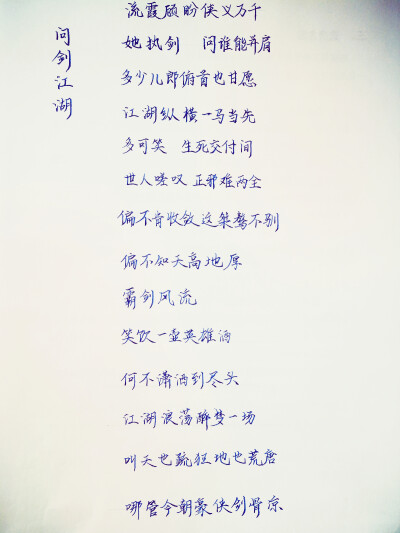 问剑江湖
流霞顾盼侠义万千
她执剑 问谁能并肩
多少儿郎俯首也甘愿
江湖纵横一马当先
多可笑 生死交付间
世人嗟叹 正邪难两全
偏不肯收敛这桀骜不别
偏不知天高地厚
霸剑风流
笑饮一壶英雄酒
何不潇洒到尽头
江湖浪荡醉梦一场
叫天也疏狂地也荒唐
哪管今朝豪侠剑骨凉